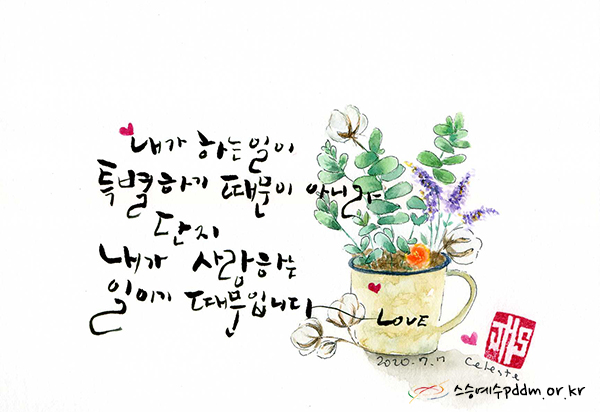 내가 하는일이
특별하기 때문이 아니라
단지
내가 사랑하는
일이기 때문입니다
LOVE
2020.7.7
Celeste
JHS
스승예수pddm.or.kr